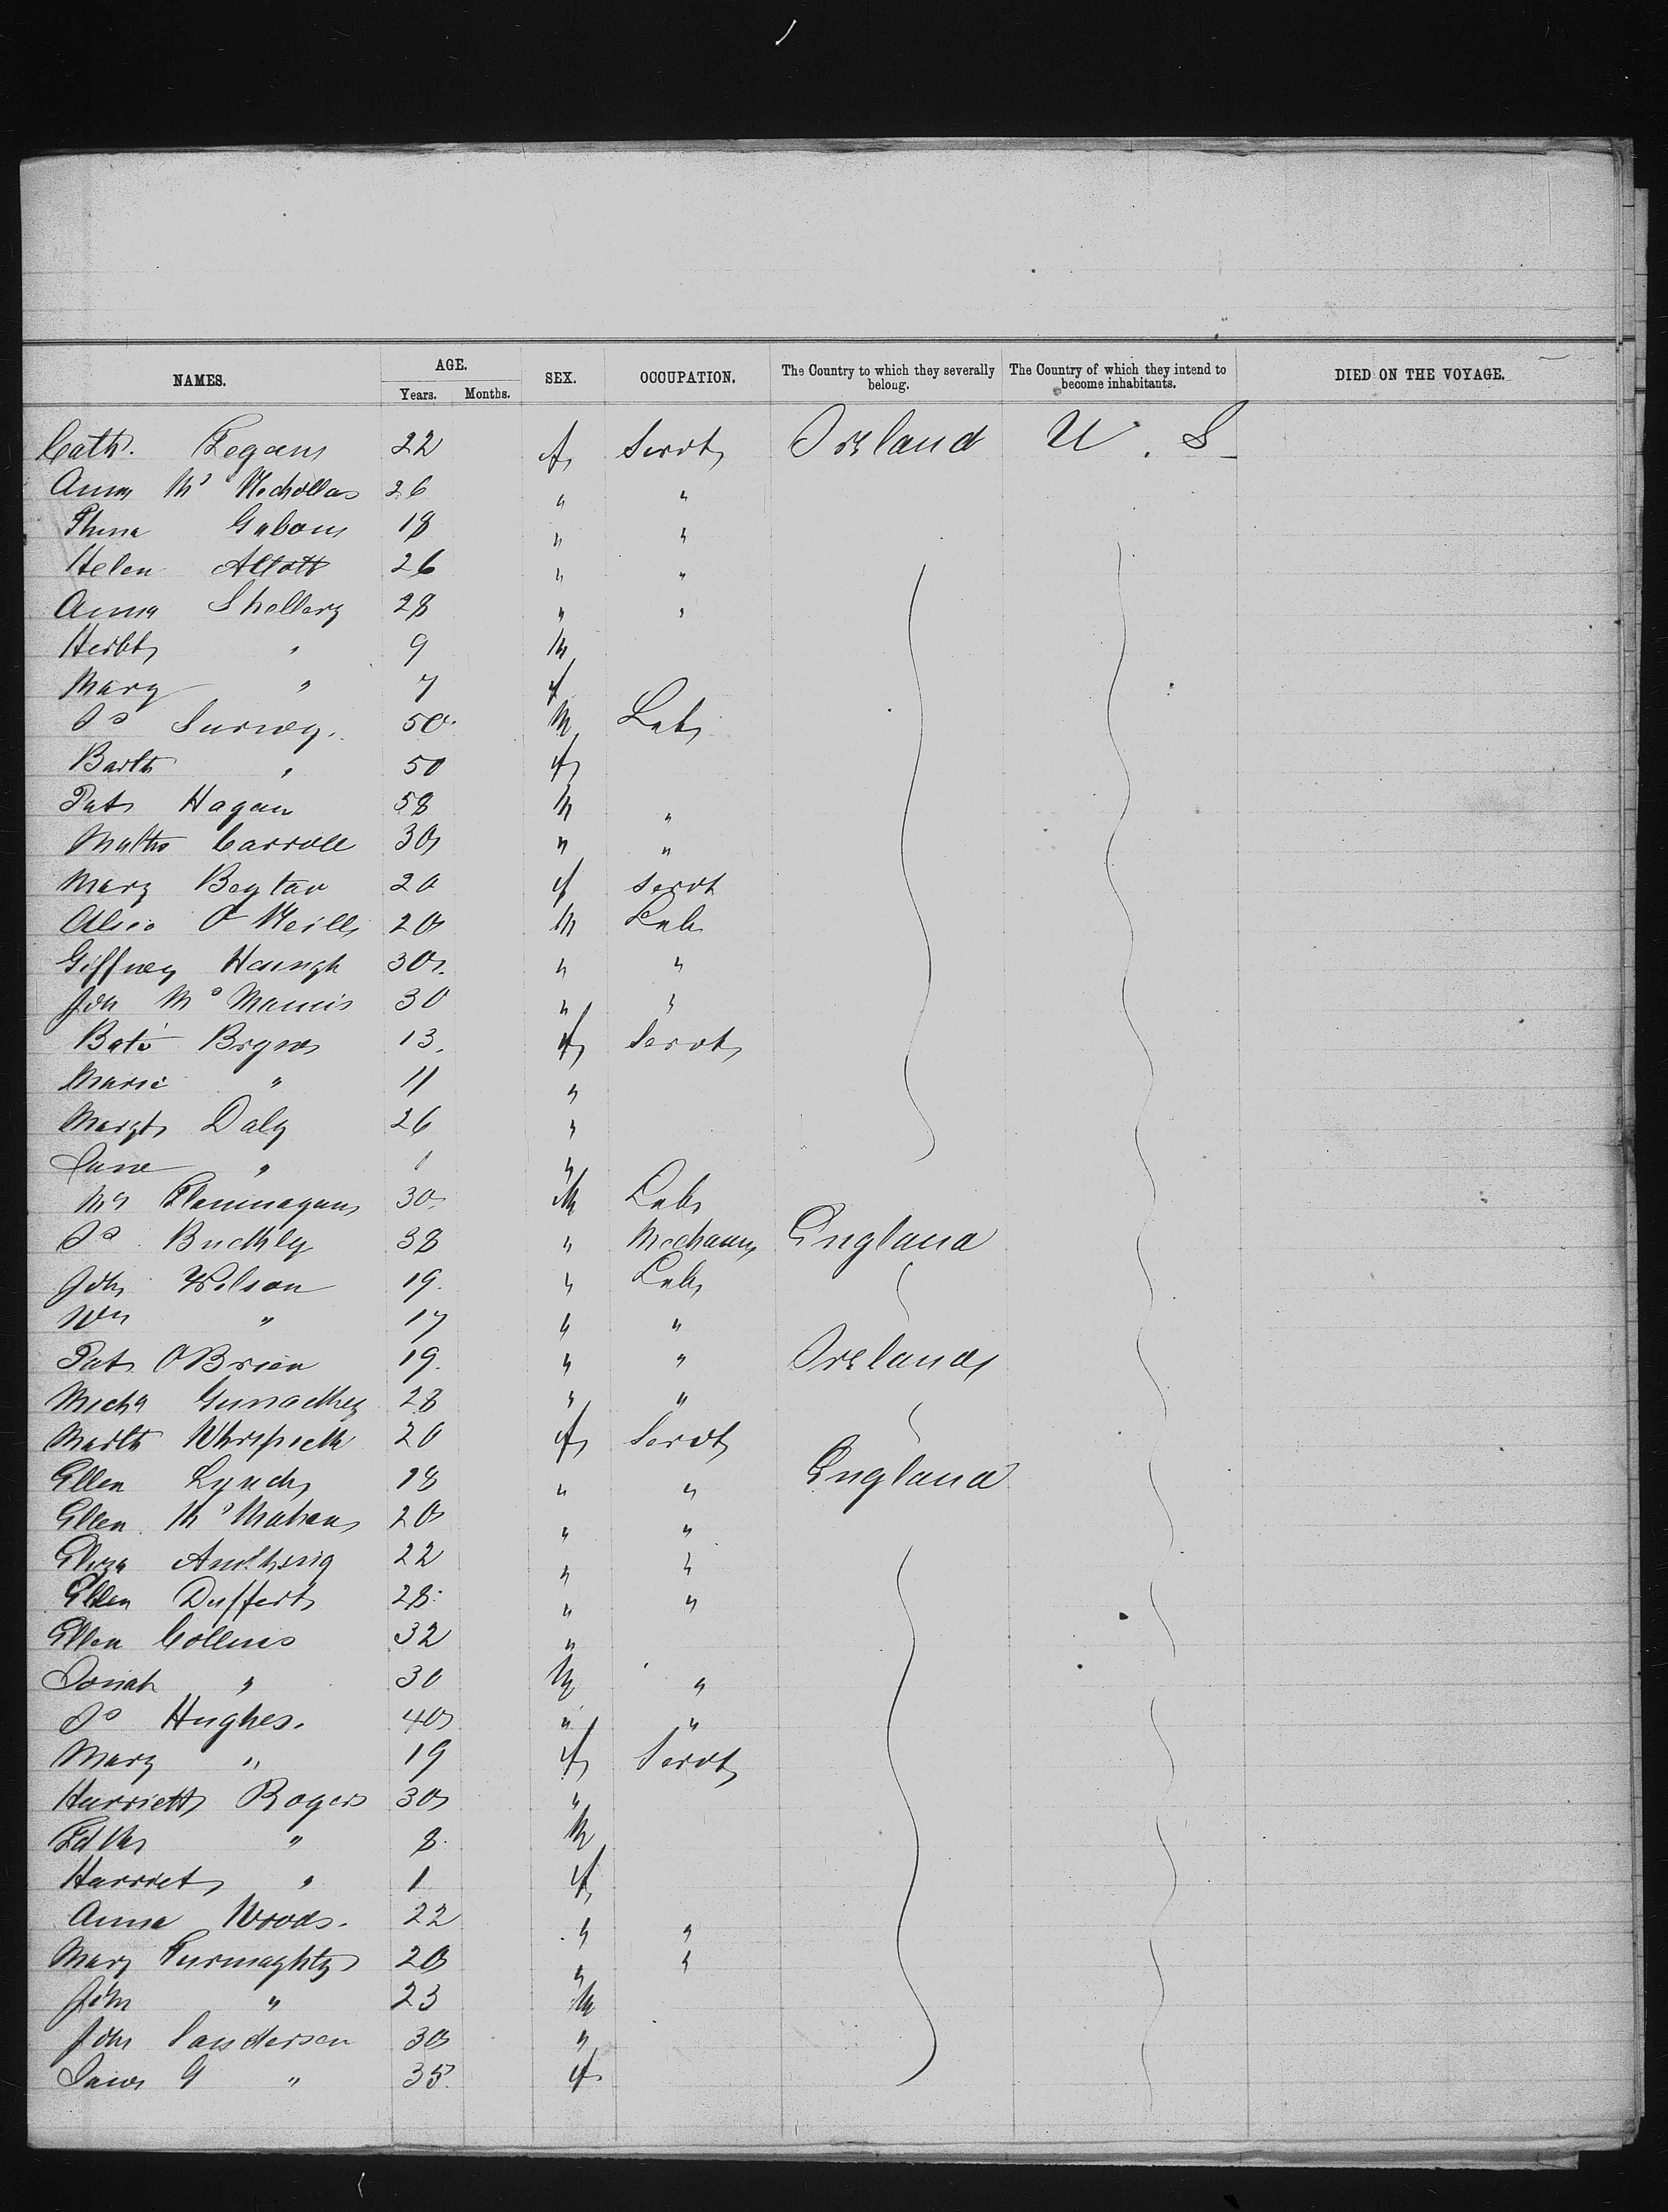 NAMES. AGE. SEX. OCCUPATION. The Country to which they severally belong. The Country of which they intend to become inhabitants. DIED ON THE VOYAGE.
Years. Months.
Cath. Fegans 22 f Servt Ireland U. S
Anna Mc Nichollas 26 " "
Gabons 18 " "
Helen Allott 26 " "
Anna Shellery 28 " "
Herbt " 9 M
Mary " 7 f
Js Survey. 50 M Lab
Barth " 50 f
Pat Hagan 58 M "
Matths Carroll 30 " "
Mary Boytar 20 f Servt
Alico O Neill 20 M Lab
Giffney Haungh 30 " "
Jon Mc Mannis 30 " "
Bato Brynes 13. f Servt
Maria " 11 "
Margt Daly 26 "
Jane " 1 "
Flannnagans 30 M Lab
Js Buckley 38 " Mechann England
Joh Wilson 19. " Lab
Wm " 17 " "
Pat OBrien 19. " " Ireland
Micha 28 " "
Marth 20 f Servt
Ellen Lynch 18 " " England
Ellen Mc Mahan 20 " "
Eliza 22 " "
Ellen Duffert 28 " "
Ellen Collins 32 "
Jonah " 30 M "
Js Hughes. 40 " "
Mary " 19 f Servt
Harriett Rogers 30 "
" 8 M
Harriet " 1 f
Anna Woods. 22 " "
Mary Furmaghty 20 " "
John " 23 M
John Sanderson 30 "
G " 35. f